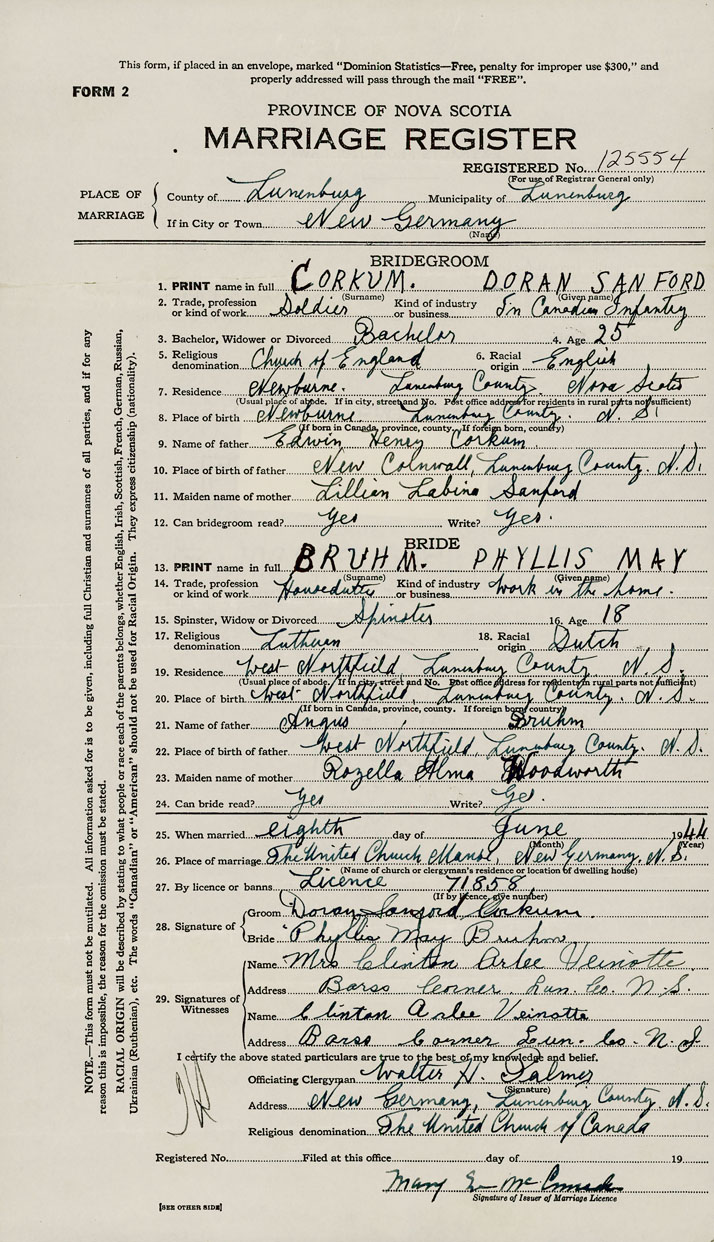 This form, if placed in an envelope, marked "Dominion Statistics—Free, penalty for improper use $300," and
properly addressed will pass through the mail "FREE".
FORM 2
PROVINCE OF NOVA SCOTIA
MARRIAGE REGISTER
REGISTERED No. 125554
(For use of Registrar General only)
PLACE OF MARRIAGE
County of Lunenburg Municipality of Lunenburg
If in City or Town New Germany
(Name)
BRIDEGROOM
1. PRINT name in full CORKUM. DORAN SANFORD
(Surname) (Given name)
2. Trade, profession or kind of work Soldier Kind of industry or business In Canadian Infantry
3. Bachelor, Widower or Divorced Bachelor 4. Age 25
5. Religious denomination Church of England 6. Racial origin English
7. Residence Newburne. Lunenburg County. Nova Scotia
(Usual place of abode. If in city, street and No. Post office address for residents in rural parts not sufficient)
8. Place of birth Newburne. Lunenburg County. N. S.
(If born in Canada, province, county. If foreign born, country)
9. Name of father Edwin Henry Corkum
10. Place of birth of father New Cornwall, Lunenburg County. N.S.
11. Maiden name of mother Lillian Labina Sanford
12. Can bridegroom read? Yes Write? Yes.
BRIDE
13. PRINT name in full BRUHM. PHYLLIS MAY
(Surname) (Given name)
14. Trade, profession or kind of work Houseduties Kind of industry or business work in the home.
15. Spinster, Widow or Divorced Spinster 16. Age 18
17. Religious denomination Lutheran 18. Racial origin Dutch
19. Residence West Northfield Lunenburg County N. S.
(Usual place of abode. If in city, street and No. Post office address for residents in rural parts not sufficient)
20. Place of birth West Northfield, Lunenburg County. N. S.
(If born in Canada, province, county. If foreign born, country)
21. Name of father Angus Bruhm
22. Place of birth of father West Northfield, Lunenburg County. N. S.
23. Maiden name of mother Rozella Alma Woodworth
24. Can bride read? Yes Write? Yes.
25. When married eighth day of June 1944
(Month) (Year)
26. Place of marriage The United Church Manse, New Germany, N.S.
(Name of church or clergyman's residence or location of dwelling house)
27. By licence or banns Licence 71858
(If by licence, give number)
28. Signature of
Groom Doran Sanford Corkum.
Bride Phyllis May Bruhm
29. Signatures of Witnesses
Name Mrs Clinton Arlee Veinotte
Address Barss Corner. Lun. Co. N. S.
Name Clinton Arlee Veinotte
Address Barss Corner Lun. Co. N. S
I certify the above stated particulars are true to the best of my knowledge and belief.
Officiating Clergyman Walter H. Palmer
(Signature)
Address New Germany, Lunenburg County, N.S.
Religious denomination The United Church of Canada
Registered No. Filed at this office day of 19
Mary
Signature of Issuer of Marriage Licence
[SEE OTHER SIDE]
NOTE.—This form must not be mutilated. All information asked for is to be given, including full Christian and surnames of all parties, and if for any
reason this is impossible, the reason for the omission must be stated.
RACIAL ORIGIN will be described by stating to what people or race each of the parents belongs, whether English, Irish, Scottish, French, German, Russian,
Ukrainian (Ruthenian), etc. The words "Canadian" or "American" should not be used for Racial Origin. They express citizenship (nationality).